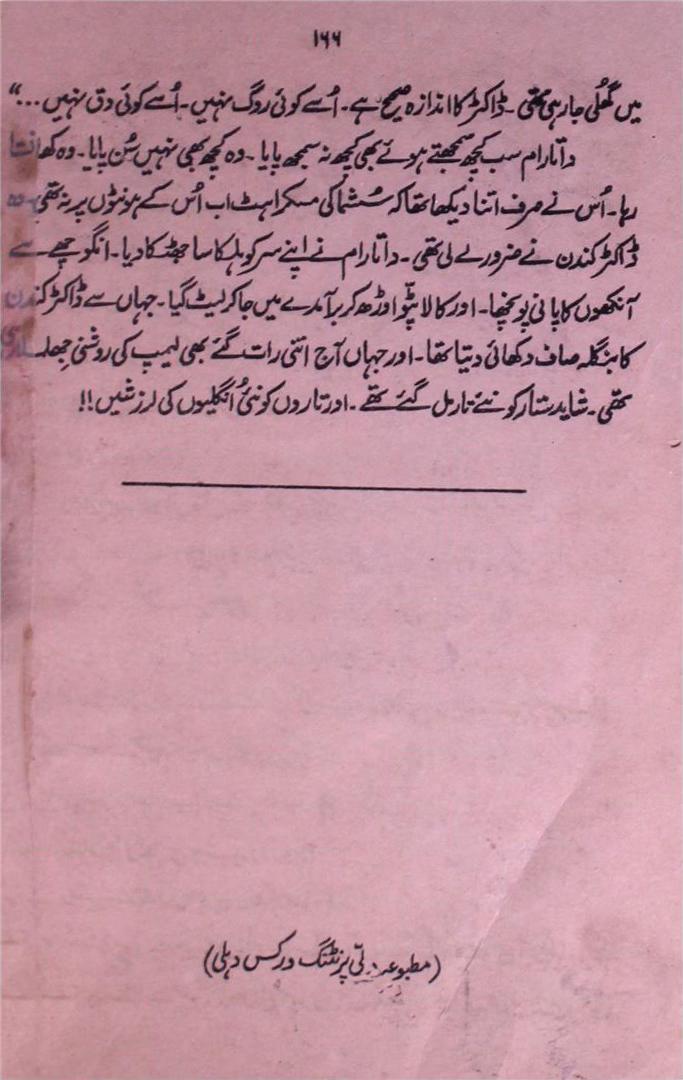 ۱۶۶
میں گھُلی جا رہی تھی۔ ڈاکٹر کا اندازہ صحیح ہے۔ اُسے کوئی روگ نہیں۔ اُسے کوئی دق نہیں...“
داتا رام سب کچھ سمجھتے ہوئے بھی کچھ نہ سمجھ پایا۔ وہ کچھ بھی نہیں سُن پایا۔ وہ کھانستا
رہا۔ اُس نے صرف اتنا دیکھا تھا کہ سُشما کی مسکراہٹ اب اُس کے ہونٹوں پر نہ تھی۔ وہ
ڈاکٹر کندن نے ضرور لے لی تھی۔ داتا رام نے اپنے سر کو ہلکا سا جھٹکا دیا۔ انگوچھے سے
آنکھوں کا پانی پونچھا۔ اور کالا پٹّو اوڑھ کر برآمدے میں جا کر لیٹ گیا۔ جہاں سے ڈاکٹر کندن
کا بنگلہ صاف دکھائی دیتا تھا۔ اور جہاں آج اتنی رات گئے بھی لیمپ کی روشنی جھلملا رہی
تھی۔ شاید ستار کو نئے تار مل گئے تھے۔ اور تاروں کو نئی اُنگلیوں کی لرزشیں!!
(مطبوعہ دلّی پرنٹنگ ورکس دہلی)